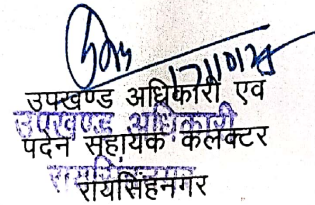 17/10/25
उपखण्ड अधिकारी एवं
उपखण्ड अधिकारी
पदेन सहायक कलक्टर
रायसिंहनगर